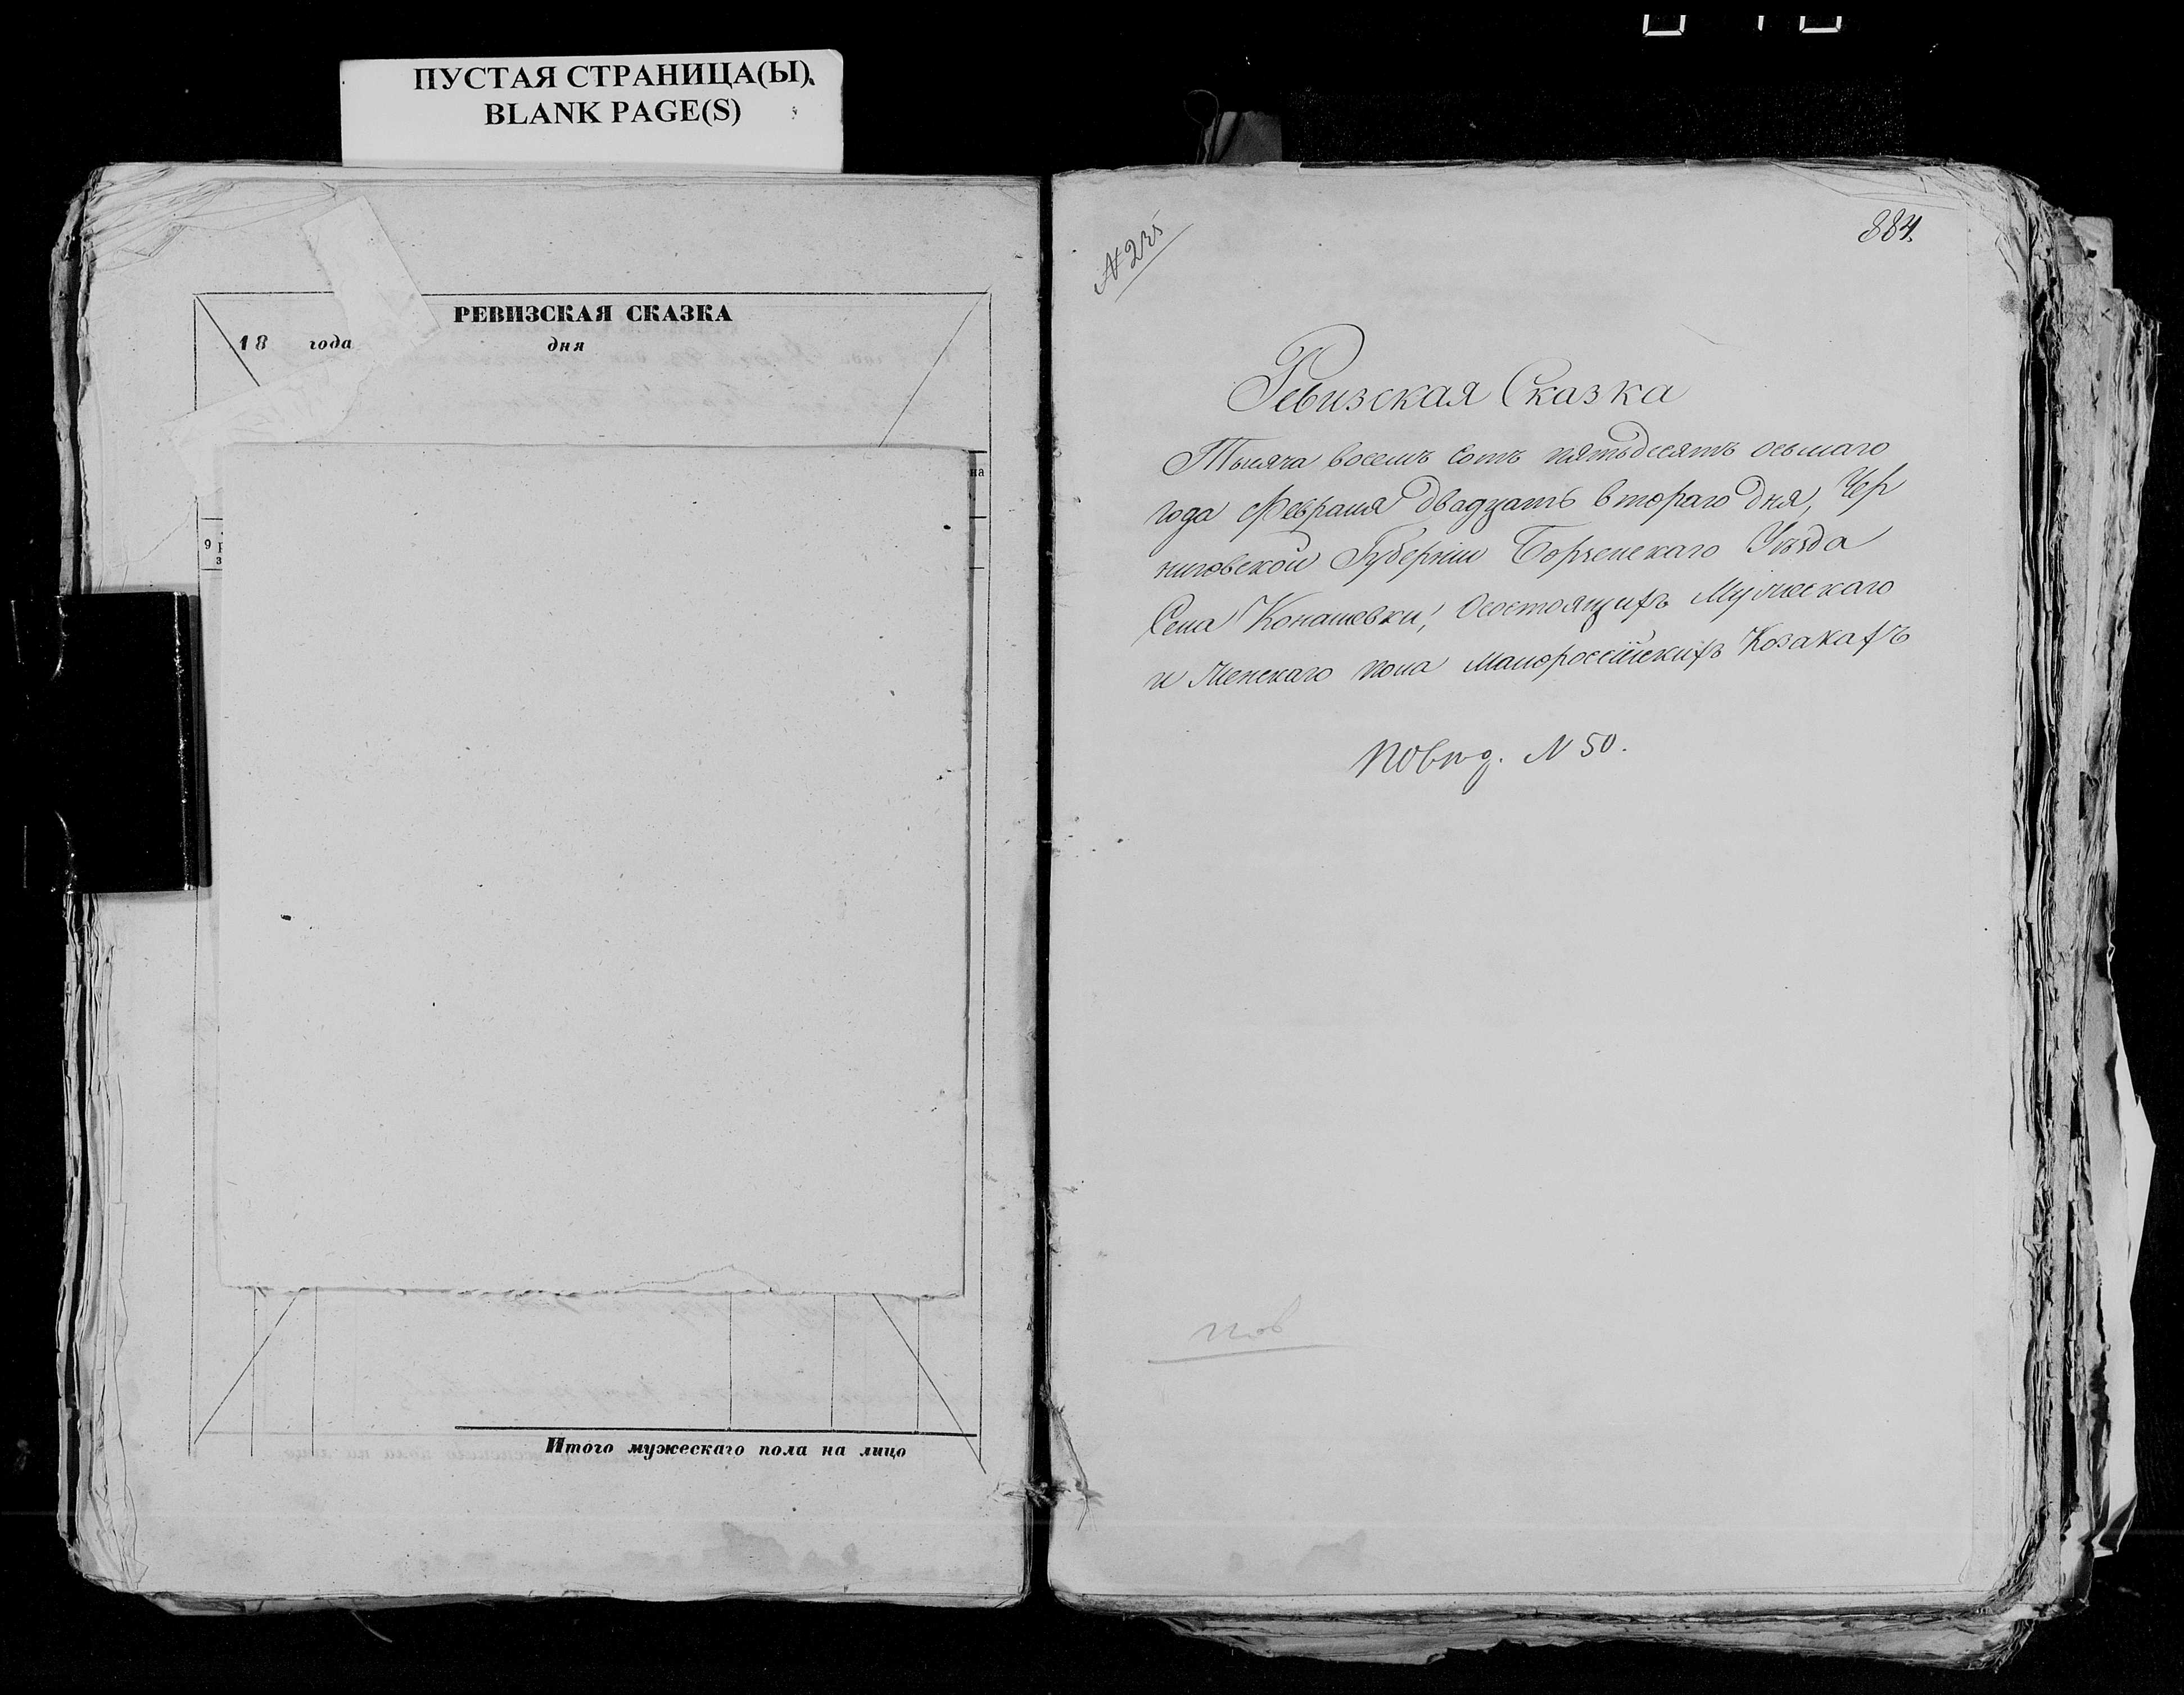 ПУСТАЯ СТРАНИЦА(Ы).
BLANK PAGE(S)
РЕВИЗСКАЯ СКАЗКА
18 года дня
на
9 р
з
Итого мужескаго пола на лицо
884.
Ревизская Сказка
Тысяча восемь сотъ пятьдесятъ осьмаго
года Февраля двадцать втораго дня, Чер
ниговской Губерніи Борзенскаго Уѣзда
Села Конашевки, Осостоящихъ Мужескаго
и Женскаго пола Малороссійскихъ Козакахъ
N 50.